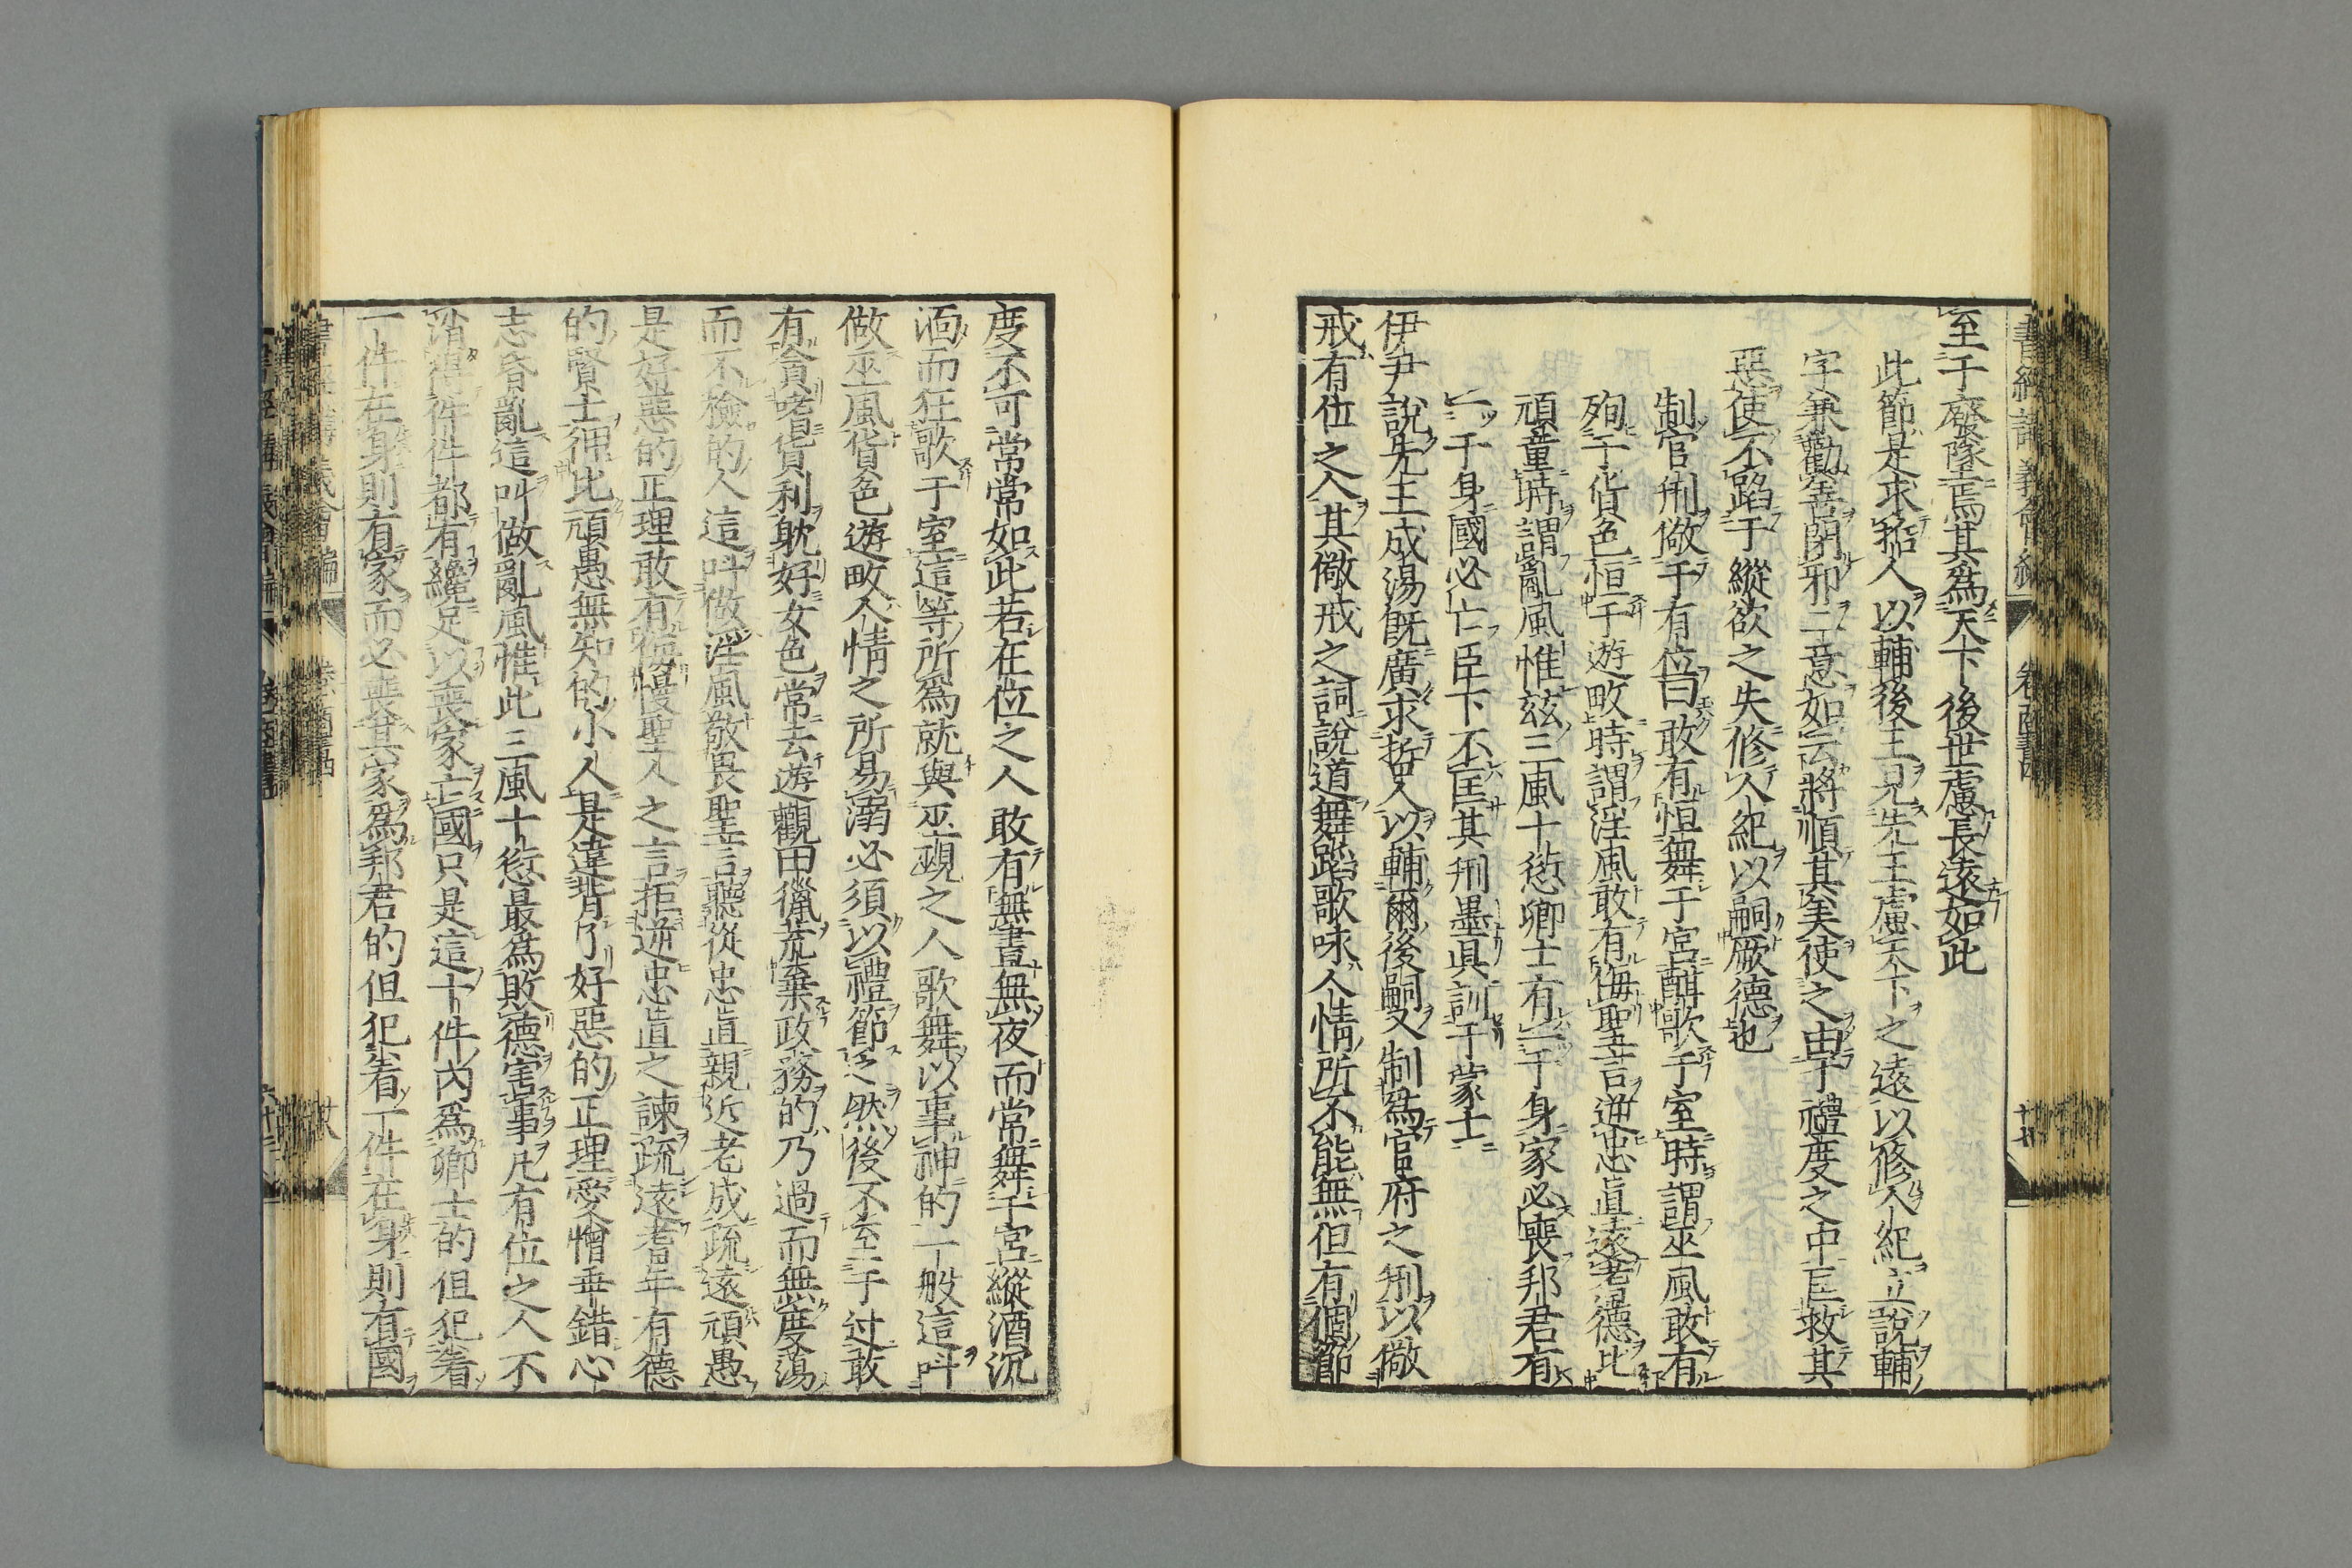 至于廢墜焉其爲天下後世慮長遠如此
此節是求哲人以輔後王見先王慮天下之遠以修人紀立說輔
字兼勸善閉邪二意如云將順其美使之由于禮度之中匡救其
惡使不蹈于縱欲之失修人紀以嗣厥德也
制官刑儆于有位曰敢有恒舞于宮酣歌于室時謂巫風敢有
殉于貨色恒于遊畋時謂淫風敢有侮聖言逆忠直遠耆德比
頑童時謂亂風惟茲三風十愆卿士有一于身家必喪邦君有
一于身國必亡臣下不匡其刑墨具訓于蒙士
伊尹說先王成湯旣廣求哲人以輔爾後嗣又制爲官府之刑以儆
戒有位之人其儆戒之詞說道舞蹈歌咏人情所不能無但有個節
度不可常常如此若在位之人敢有無晝無夜而常舞于宮縱酒沉
湎而狂歌于室這等所爲就與巫覡之人歌舞以事神的一般這呌
做巫風貨色遊畋人情之所易溺必須以禮節之然後不至于过敢
有貪嗜貨利耽好女色常去遊觀田獵荒棄政務的乃過而無度蕩
而不檢的人這呌做淫風敬畏聖言聽從忠直親近老成疏遠頑愚
是好惡的正理敢有侮慢聖人之言拒逆忠直之諫疏遠耆年有德
的賢士狎比頑愚無知的小人是違背了好惡的正理愛憎乖錯心
志昏亂這叫做亂風惟此三風十愆最爲敗德害事凡有位之人不
消得件件都有纔足以喪家亡國只是這十件內爲卿士的但犯着
一件在身則有家而必喪其家爲邦君的但犯着一件在身則有國